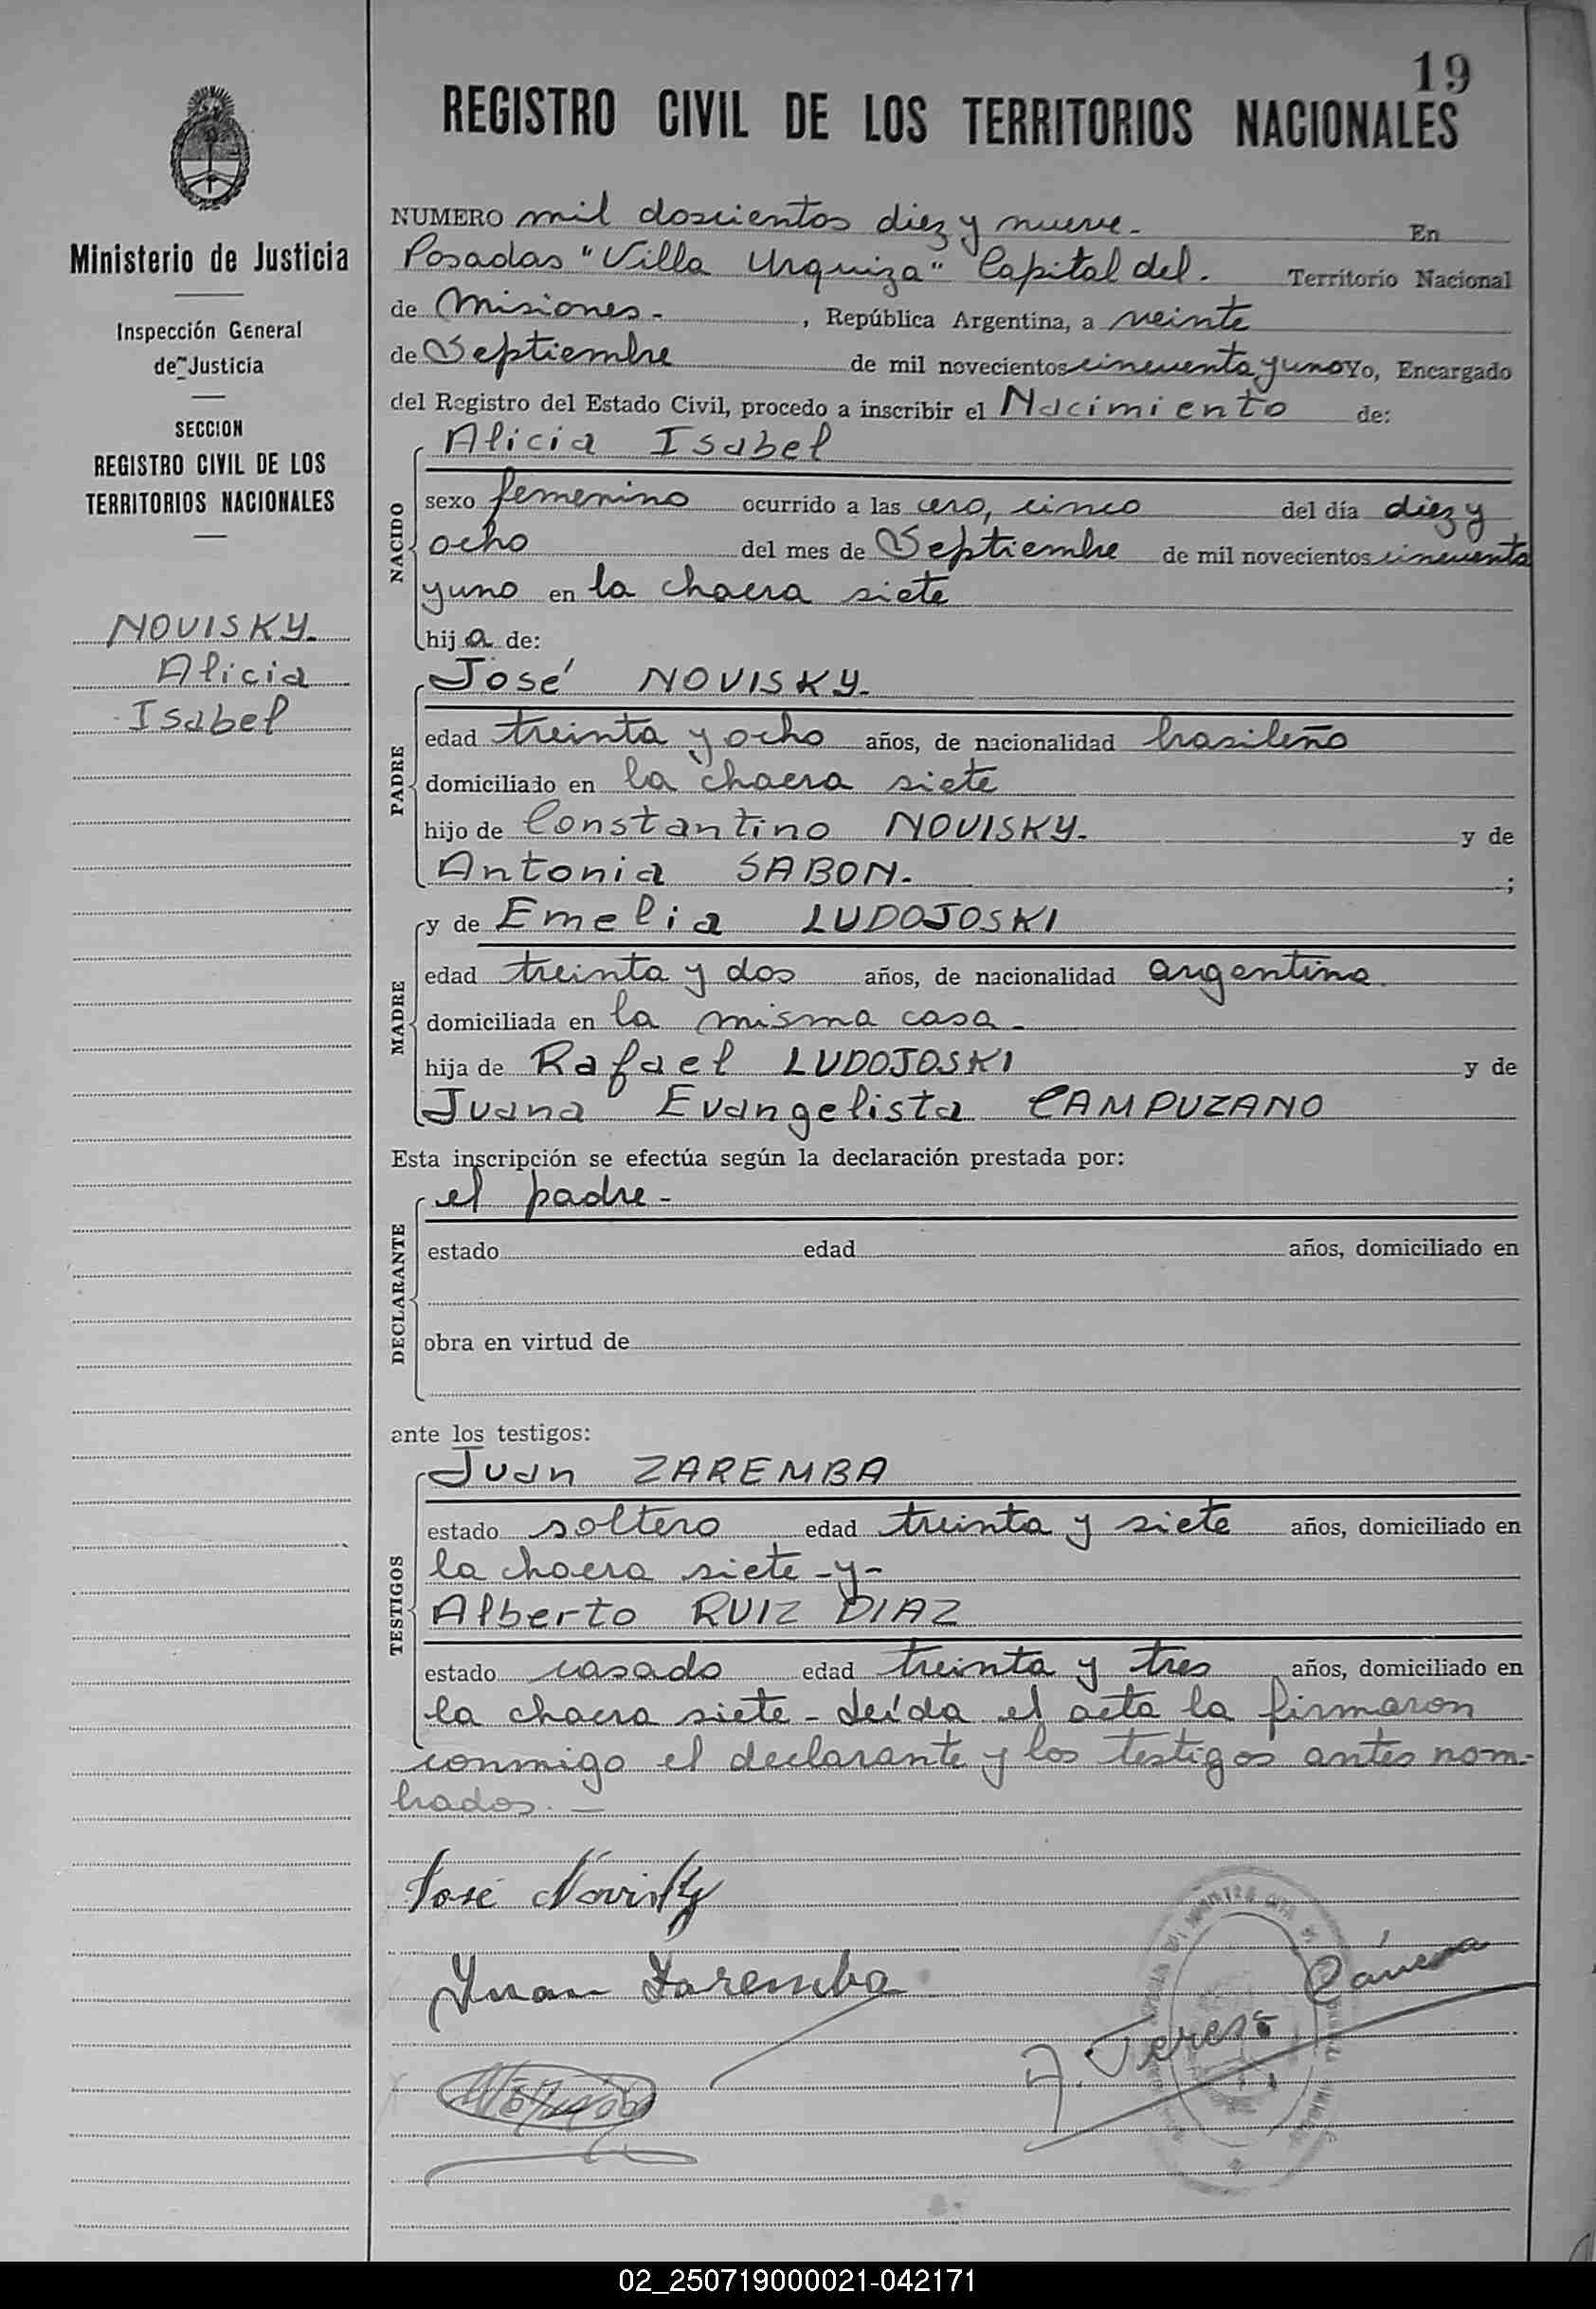 19
REGISTRO CIVIL DE LOS TERRITORIOS NACIONALES
Ministerio de Justicia
Inspección General
de Justicia
SECCION
REGISTRO CIVIL DE LOS
TERRITORIOS NACIONALES
NOVISKY.
Alicia
Isabel
NUMERO mil doscientos diez y nueve.- En
Posadas "Villa Urquiza" Capital del. Territorio Nacional
de Misiones.- , República Argentina, a veinte
de Septiembre de mil novecientos cincuenta y uno Yo, Encargado
del Registro del Estado Civil, procedo a inscribir el Nacimiento de:
NACIDO
Alicia Isabel
sexo femenino ocurrido a las cero, cinco del día diez y
ocho del mes de Septiembre de mil novecientos cincuenta
y uno en la chacra siete
hija de:
PADRE
José NOVISKY.
edad treinta y ocho años, de nacionalidad brasileño
domiciliado en la chacra siete
hijo de Constantino NOVISKY. y de
Antonia SABON.- ;
MADRE
y de Emelia LUDOJOSKI
edad treinta y dos años, de nacionalidad argentina.
domiciliada en la misma casa.-
hija de Rafael LUDOJOSKI y de
Juana Evangelista CAMPUZANO
Esta inscripción se efectúa según la declaración prestada por:
DECLARANTE
el padre.-
estado edad años, domiciliado en
obra en virtud de
ante los testigos:
TESTIGOS
Juan ZAREMBA
estado soltero edad treinta y siete años, domiciliado en
la chacra siete -y-
Alberto RUIZ DIAZ
estado casado edad treinta y tres años, domiciliado en
la chacra siete - Leída el acta la firmaron
conmigo el declarante y los testigos antes nom-
brados.-
José Novisky
Juan Zaremba
A. Teresa
02_250719000021-042171